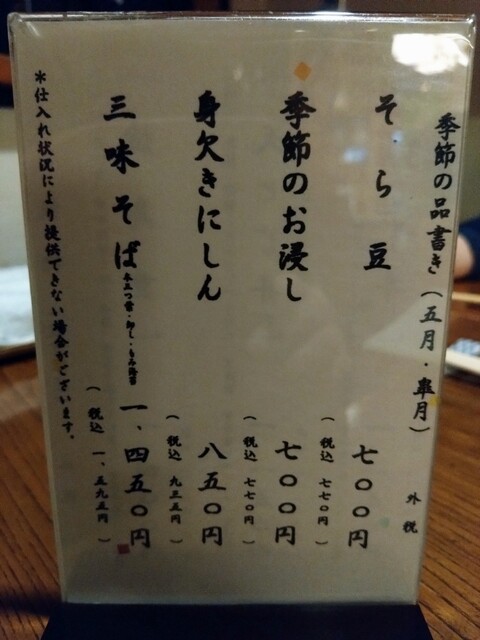 季節の品書き（五月・皐月）
外税
そら豆 七〇〇円
（税込 七七〇円）
季節のお浸し 七〇〇円
（税込 七七〇円）
身欠きにしん 八五〇円
（税込 九三五円）
三味そば 一、四五〇円
（税込 一、五九五円）
＊仕入れ状況により提供できない場合がございます。